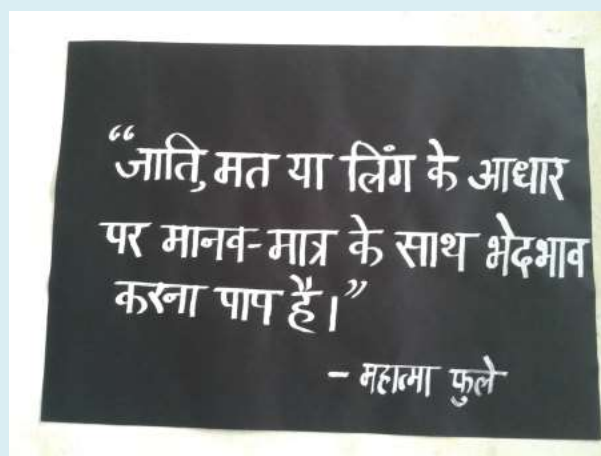 “जाति, मत या लिंग के आधार
पर मानव-मात्र के साथ भेदभाव
करना पाप है।”
– महात्मा फुले